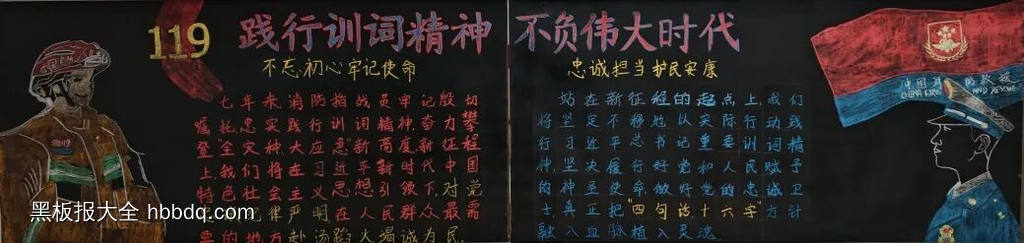 119 践行训词精神 不负伟大时代
不忘初心牢记使命
忠诚担当护民安康
七年来,消防指战员牢记殷切
嘱托,忠实践行训词精神,奋力攀
登"全灾种,大应急"新高度,新征程
上,我们将在习近平新时代中国
特色社会主义思想引领下,对党
律严明,在人民群众最需
要的地方赴汤蹈火竭诚为民.
站在新征程的起点上,我们
将坚定不移地以实际行动践
行习近平总书记重要训词精
神,坚决履行好党和人民赋予
的神圣使命,做好党的忠诚卫
士真正把"四句话十六字"方针
融入血脉植入灵魂
中国 消防救援
CHINA FIRE AND RESCUE
黑板报大全 hbbdq.com